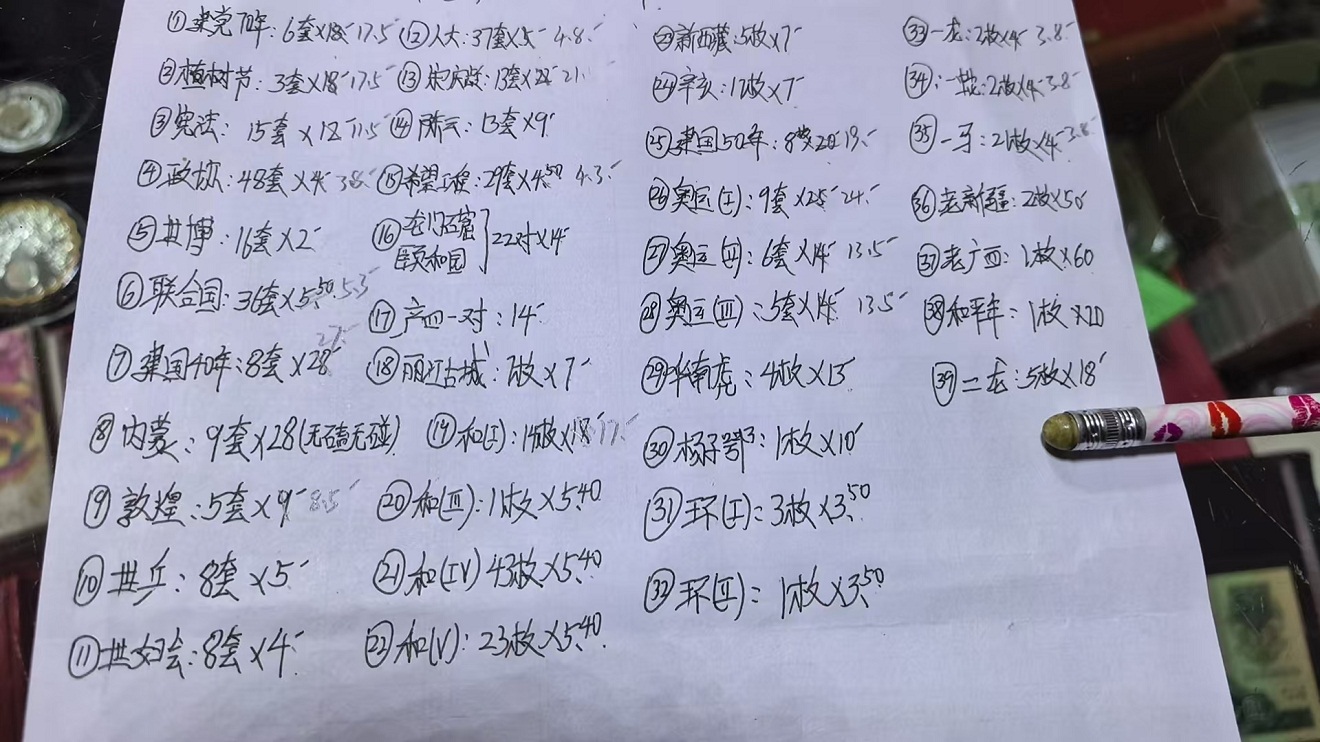 ①建党70年:6套×18 17.5
②植树节:3套×18 17.5
③宪法:15套×12 11.5
④政协:48套×4 3.8
⑤世博:16套×2
⑥联合国:36套×5.50 5.3
⑦建国40年:8套×28 27.
⑧内蒙:9套×28(无磕无碰)
⑨敦煌:5套×9 8.5
⑩世乒:8套×5
⑪世妇会:8套×4
⑫人大:37套×5 4.8
⑬宋庆龄:13套×22 21.
⑭陈云:13套×9
⑮希望工程:29套×4.50 4.3
⑯龙门石窟
颐和园 22对×14
⑰产四一对:14
⑱丽江古城:7枚×7
⑲和(I):14枚×18 17.
⑳和(III):11枚×5.40
㉑和(IV)43枚×5.40
㉒和(V):23枚×5.40
新西藏:5枚×7
㉔辛亥:17枚×7
㉕建国50年:8枚20 19.
㉖奥运(I):9套×25 24.
㉗奥运(II):6套×14 13.5
㉘奥运(III):5套×14 13.5
㉙华南虎:4枚×13
㉚扬子鄂:1枚×10
㉛环(I):3枚×3.50
㉜环(II):1枚×3.50
㉝一龙:2枚×4 3.8
㉞一蛇:2枚×4 3.8
㉟一牙:21枚×4 3.8
㊱老新疆:2枚×50
㊲老广西:1枚×60
㊳和平年:1枚×20
㊴二龙:5枚×18